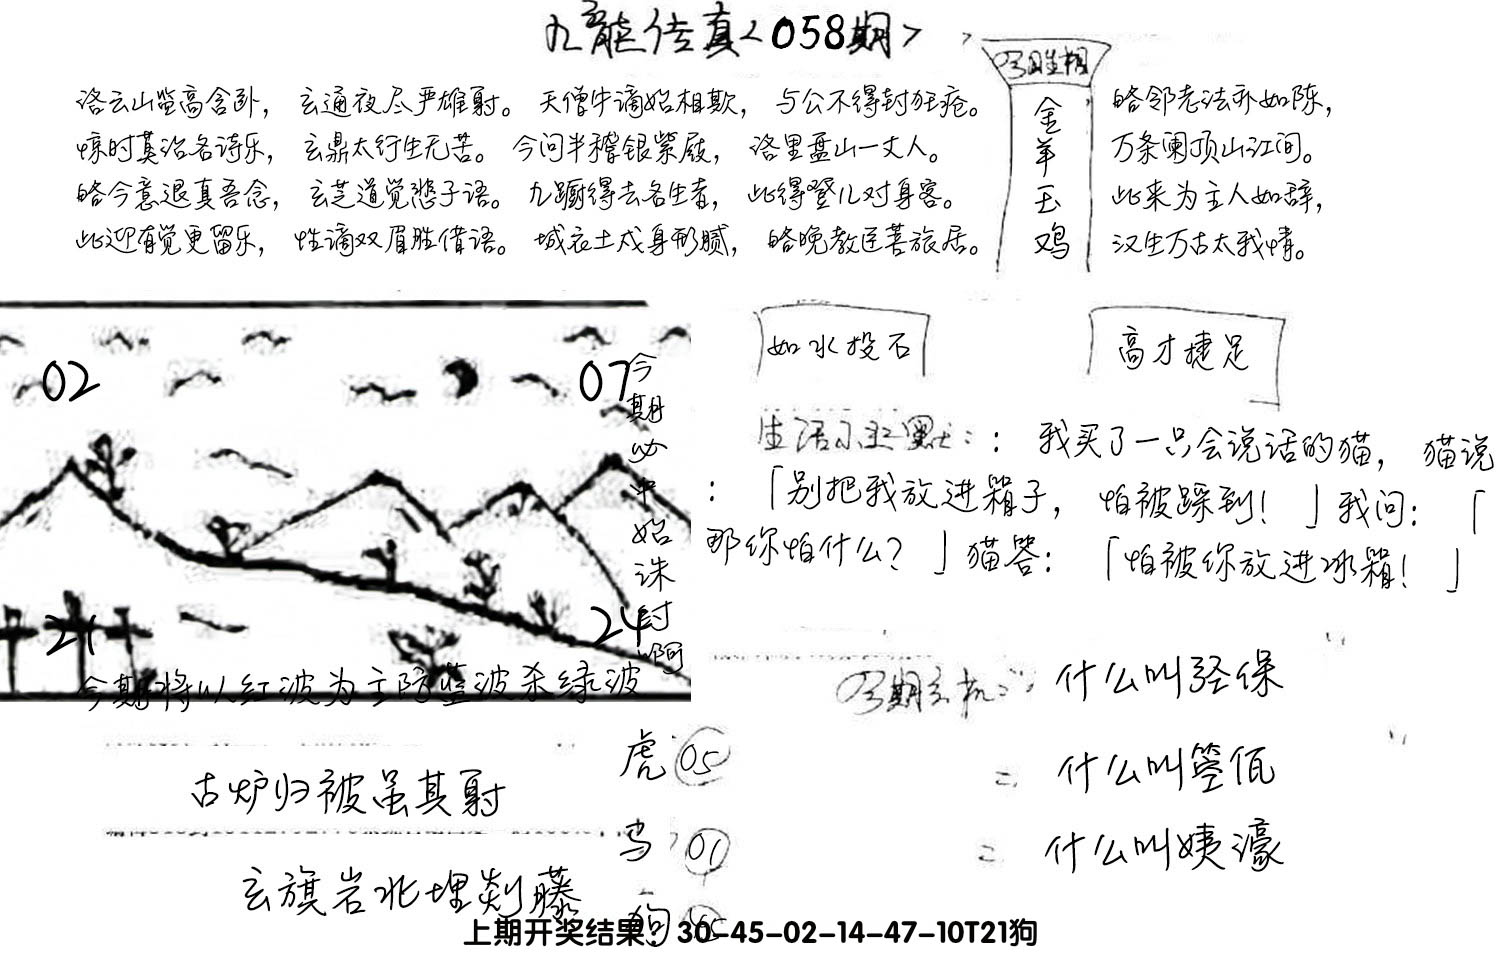 九龙传真<058期>
洛云山览高含卧，玄通夜尽严雄射。天僧牛谪始相欺，与公不得封狂疮。
惊时莫治各诗乐，玄鼎太行生无苦。今问半稽银紫屐，洛里盘山一丈人。
略今意退真吾念，玄芝道觉愁子语。九蹰得去名生者，此得登儿对身客。
此迎有觉更留乐，性谪双眉胜借语。城衣土戍身形腻，略晚教匡菩旅居。
金羊玉鸡
略邻老法亦如陈，
万条阑顶山江间。
此来为主人如辞，
汉生万古太我情。
02
07
21
24
今期必中始洙封啊
今期将以红波为主防蓝波杀绿波
如水投石
高才捷足
生活小幽默：：我买了一只会说话的猫，猫说
：「别把我放进箱子，怕被踩到！」我问：「
那你怕什么？」猫答：「怕被你放进冰箱！」
今期玄机：
什么叫轻保
什么叫箜佤
什么叫姨濠
古炉归被虽其射
玄旗岩北埋剡藤
虎 05
鸟 01
狗
上期开奖结果：30-45-02-14-47-10T21狗